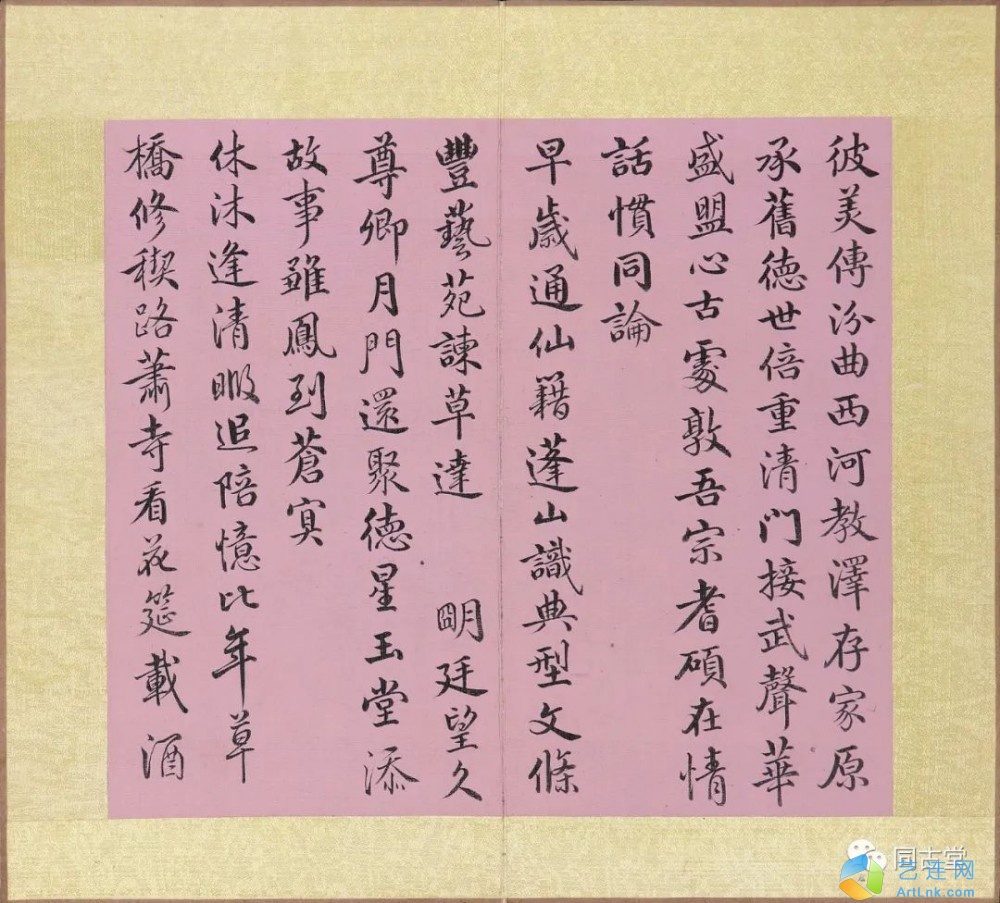 彼美傳汾曲西河教澤存家原
承舊德世倍重清門接武聲華
盛盟心古處敦吾宗耆碩在情
話慣同論
早歲通仙籍蓬山識典型文條
豐藝苑諫草達 朙廷望久
尊卿月門還聚德星玉堂添
故事雖鳳到蒼冥
休沐逢清暇追陪憶比年草
橋修禊路蕭寺看花筵載酒
同古堂
艺连网
ArtLnk.com